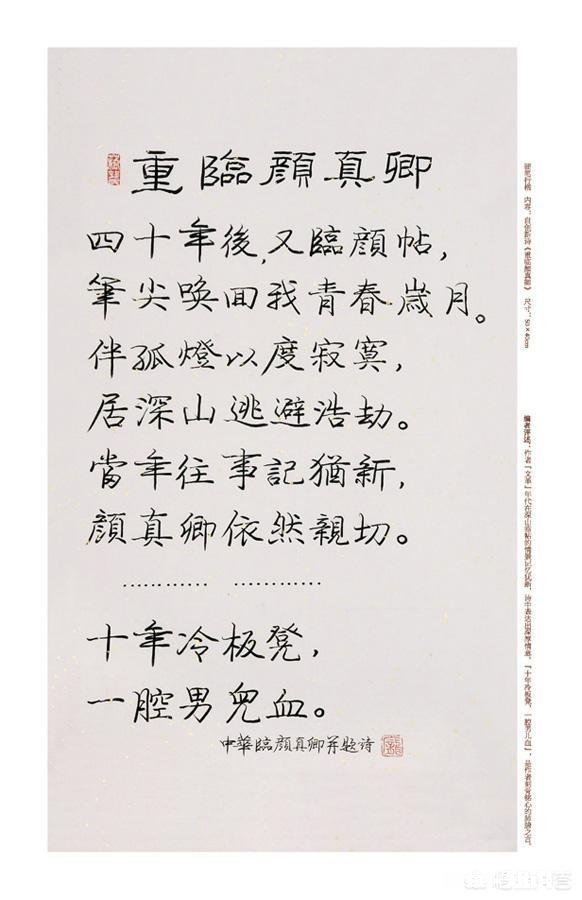 重臨顔真卿
四十年後,又臨顔帖,
筆尖喚回我青春歲月。
伴孤燈以度寂寞,
居深山逃避浩劫。
當年往事記猶新,
顔真卿依然親切。
………… …………
十年冷板凳,
一腔男兒血。
中華臨顔真卿并題詩
硬笔行楷 内容:自创新诗《重临颜真卿》 尺寸:50×40cm
编者评述:作者「文革」年代在深山临帖的情景记忆犹新,诗中表达出深厚情意。「十年冷板凳,一腔男儿血」,是作者刻骨铭心的肺腑之言。
悟空问答